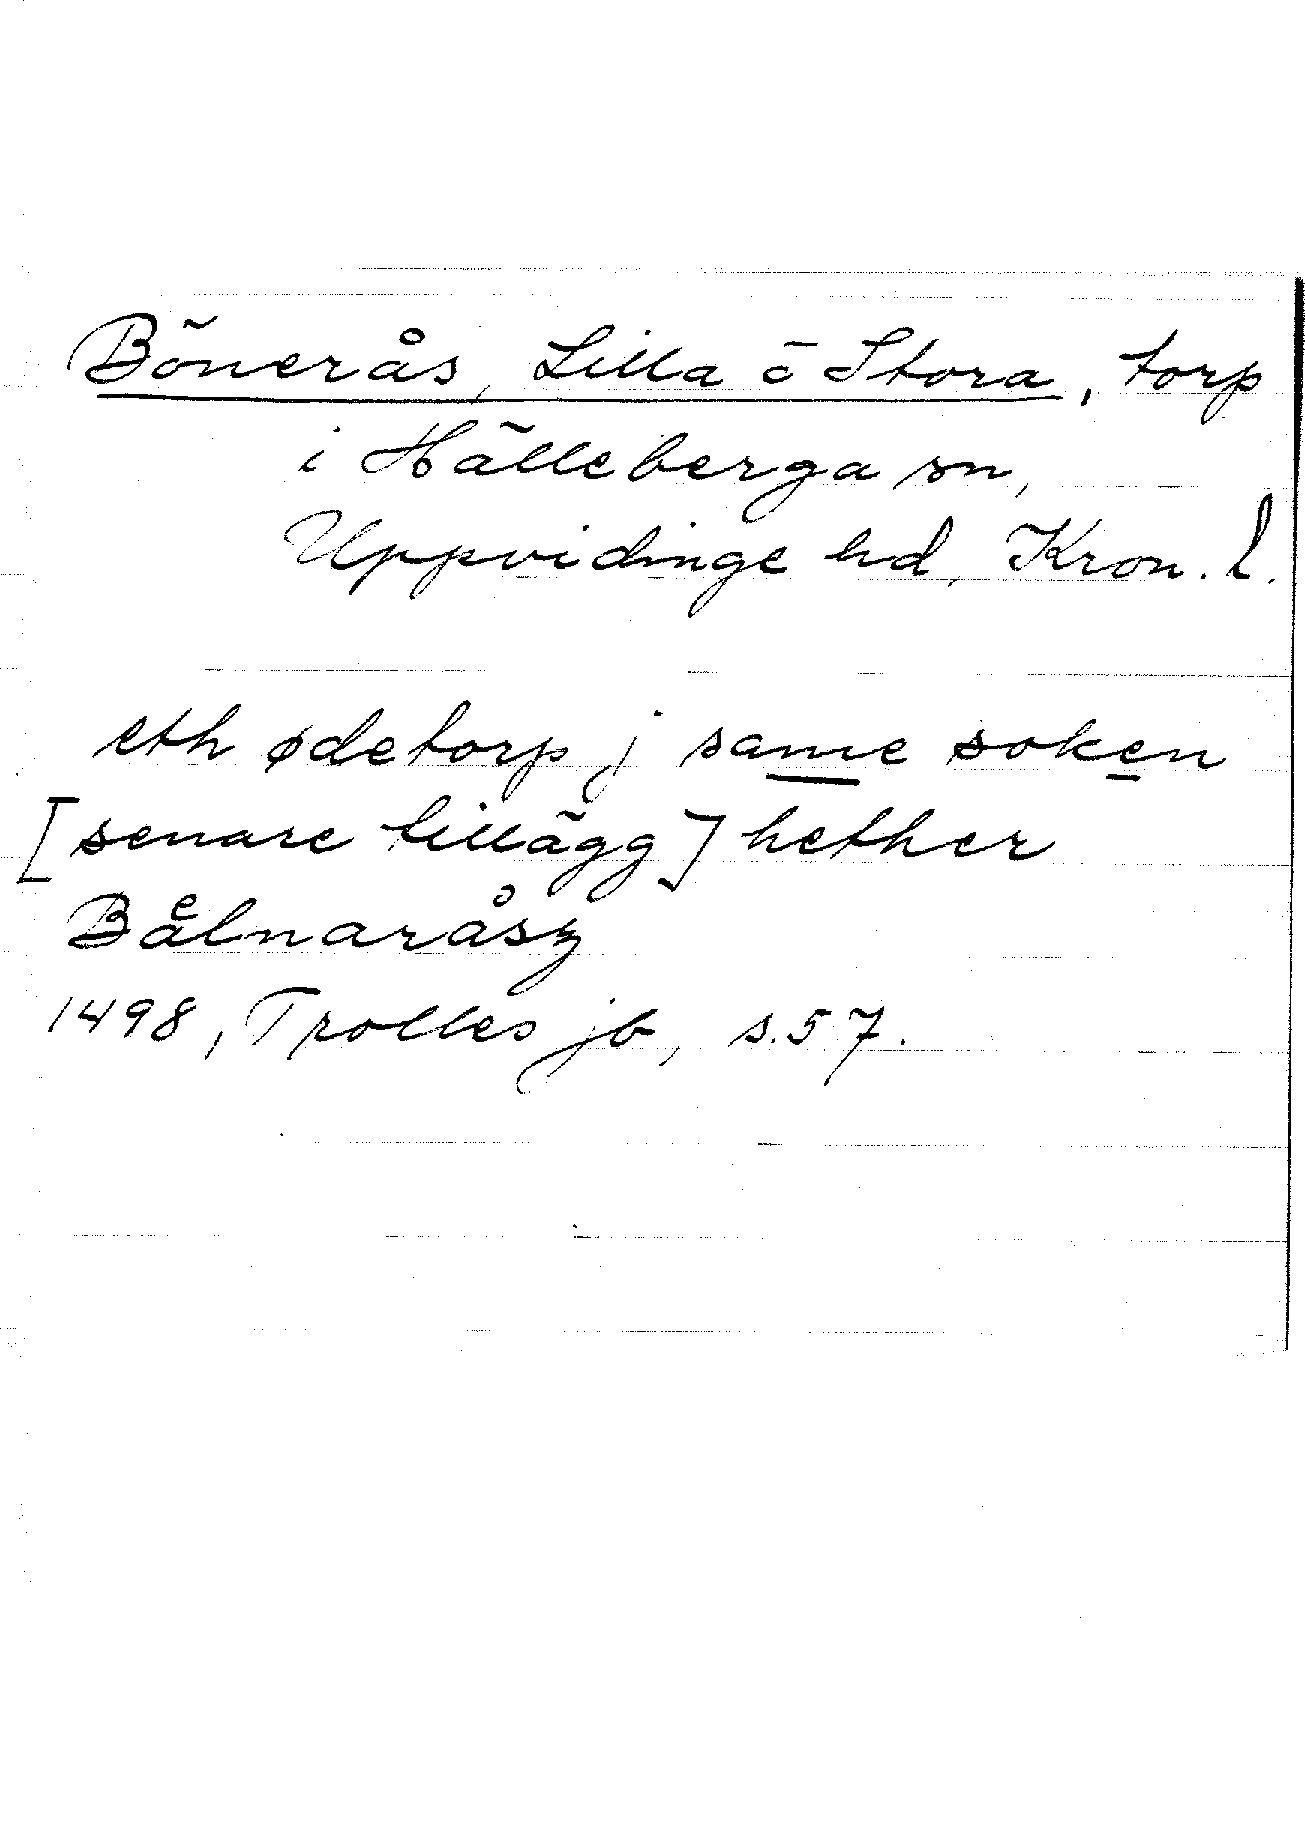 Bönerås, Lilla o Stora, torp
i Hälleberga sn,
Uppvidinge hd, Kron. l.
eth ødetorp j same soken
[senare tillägg] hether
Baͤlnaråsz
1498, Trolles jb, s. 57.